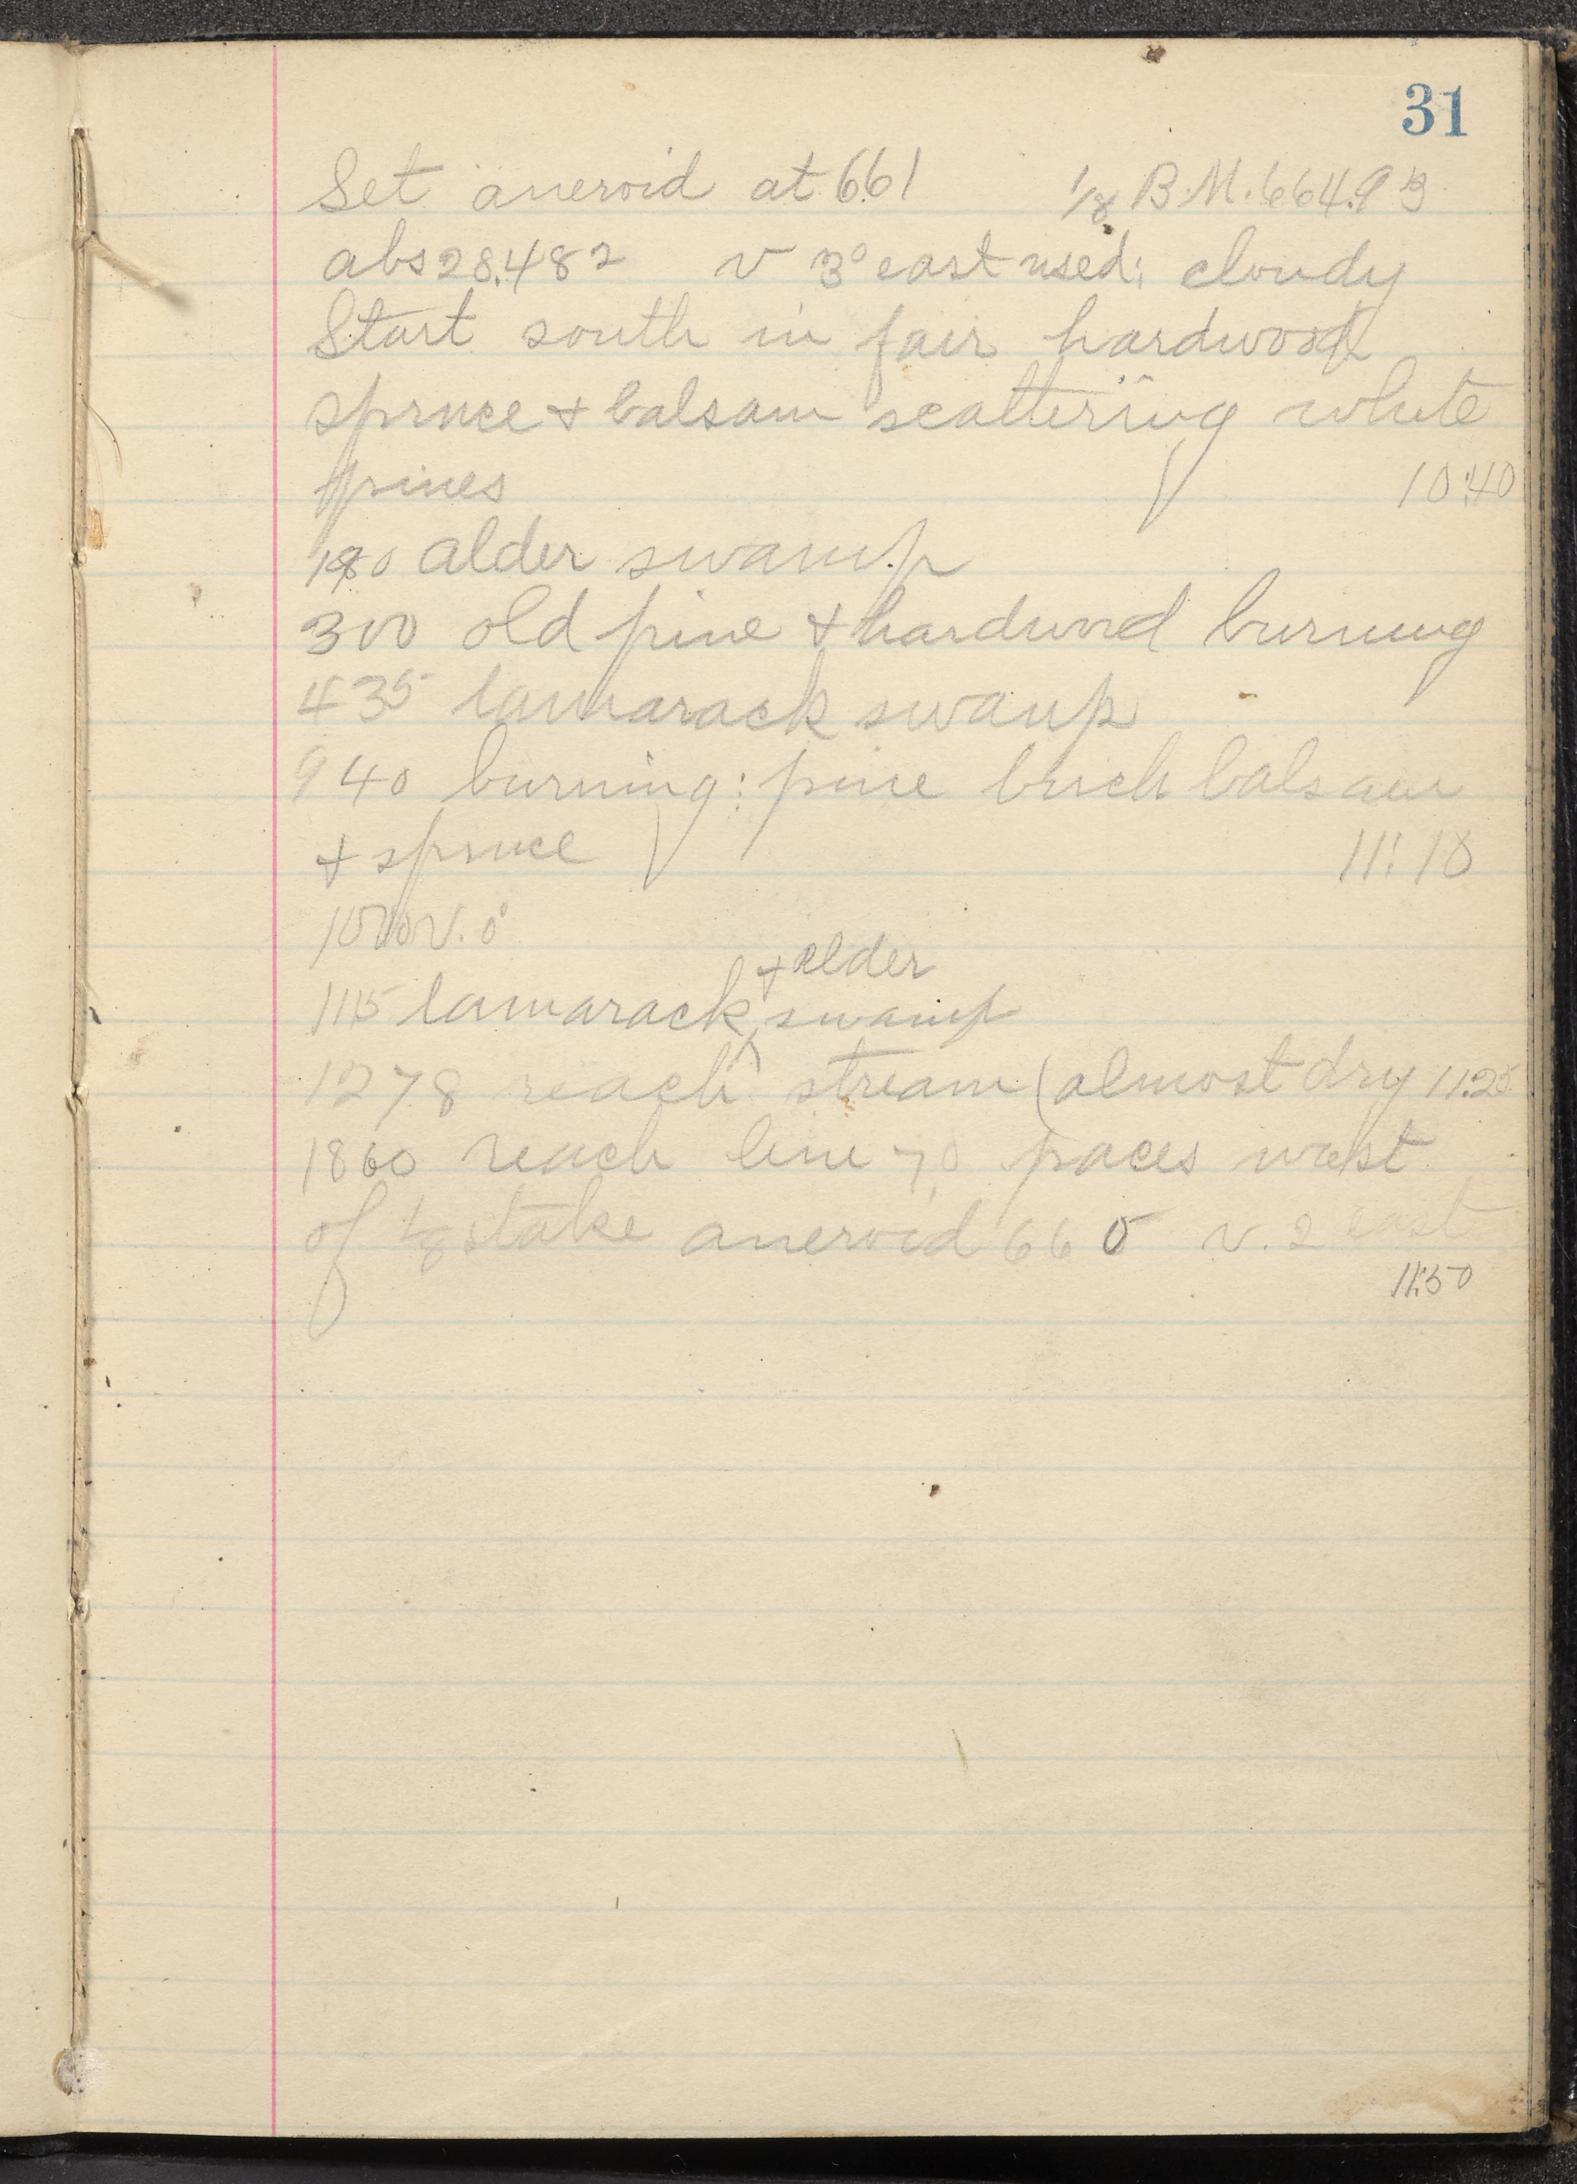 31
Set aneroid at 661 1/8 B.M. 664.93
abs 28.482 v 3° east used; cloudy
Start south in fair hardwood
spruce + balsam scattering white
pines 10:40
180 alder swamp
300 old pine + hardwood burning
435 tamarack swamp
940 burning: pine birch balsam
+ spruce 11:18
v. 0°
+ alder
1115 tamarack swamp
1278 reach stream (almost dry 11:25
1860 reach line 70 paces west
of 1/8 stake aneroid 660 v. 2 east
11:50